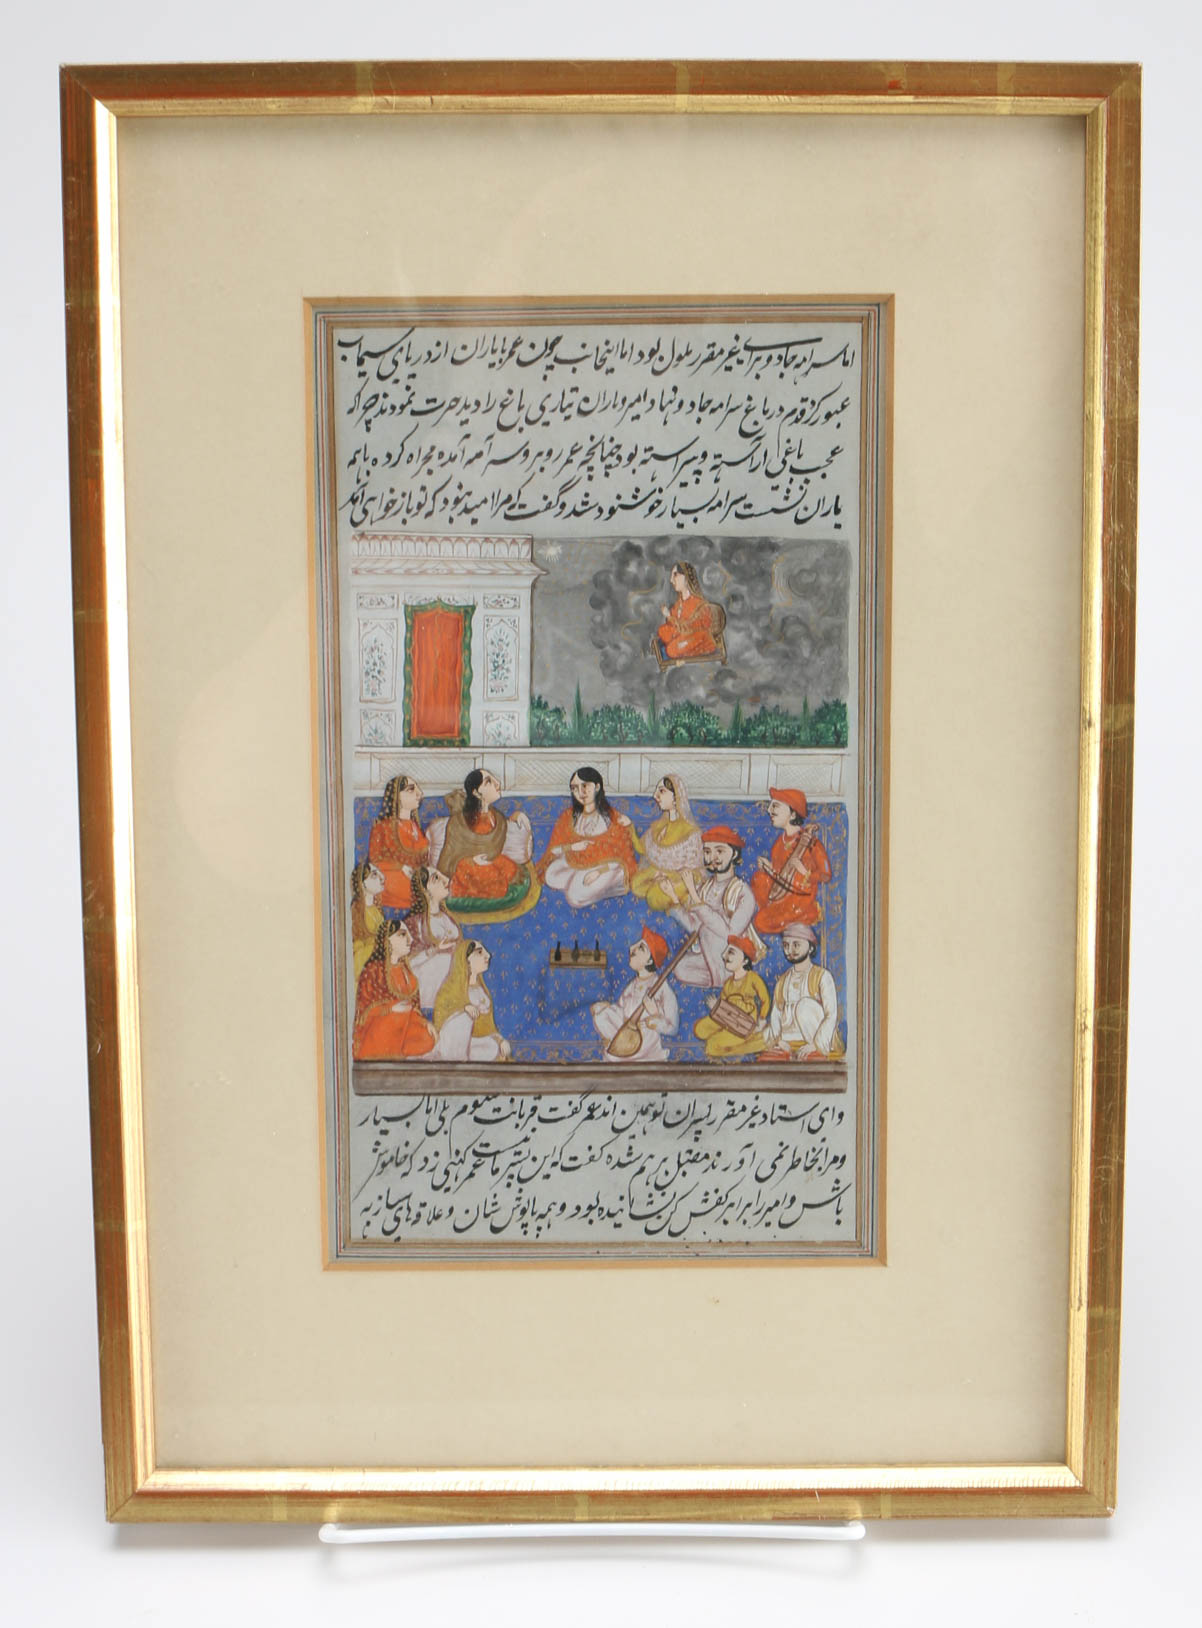 اما سرامه جادو برای غیر مقرر ملول بود اما اینجانب چون عمر با یاران از دریای سیماب
عبور کرد قدم در باغ سرامه جادو نهاد امیر و یاران تیاری باغ را دید حیرت نمودند چرا که
عجب باغی آراسته و پیراسته بود چنانچه عمر روبروی سرامه آمده مجراه کرده با همه
یاران نشست سرامه بسیار خوشنود شد و گفت که مرا امید نبود که تو باز خواهی آمد
وای استاد غیر مقرر پسران تو همین اند عمر گفت قربانت شوم بلی اما بسیار
و مرا بخاطر نمی آورند مقبل برهم شده گفت که این پسر ما نیست عمر کهنی زد که خاموش
باش و امیر را برابر کفش کن نشانیده بود و همه پاپوش شان و علاقه های ساز به